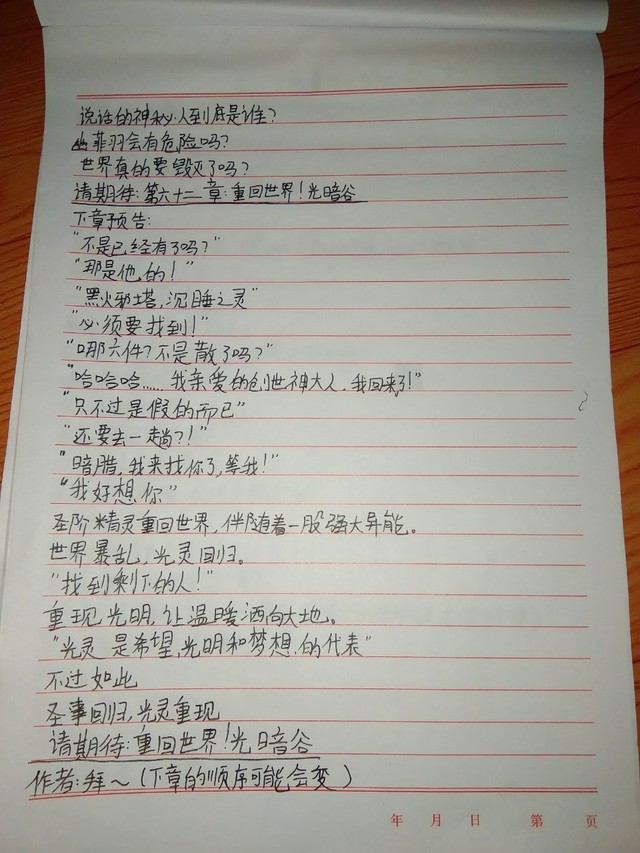 说话的神秘人到底是谁?
菲羽会有危险吗?
世界真的要毁灭了吗?
请期待:第六十二章:重回世界!光暗谷
下章预告:
"不是已经有了吗?"
"那是他的!"
"黑火邪塔,沉睡之灵"
"必须要找到!"
"哪六件?不是散了吗?"
"哈哈哈……我亲爱的创世神大人,我回来了!"
"只不过是假的而已"
"还要去一趟?!"
"暗腊,我来找你了,等我!"
"我好想你"
圣阶精灵重回世界,伴随着一股强大异能。
世界暴乱,光灵回归。
"找到剩下的人!"
重现光明,让温暖洒向大地。
"光灵 是希望,光明和梦想的代表"
不过如此
圣事回归,光灵重现
请期待:重回世界!光暗谷
作者:拜~(下章的顺序可能会变)
年 月 日 第 页